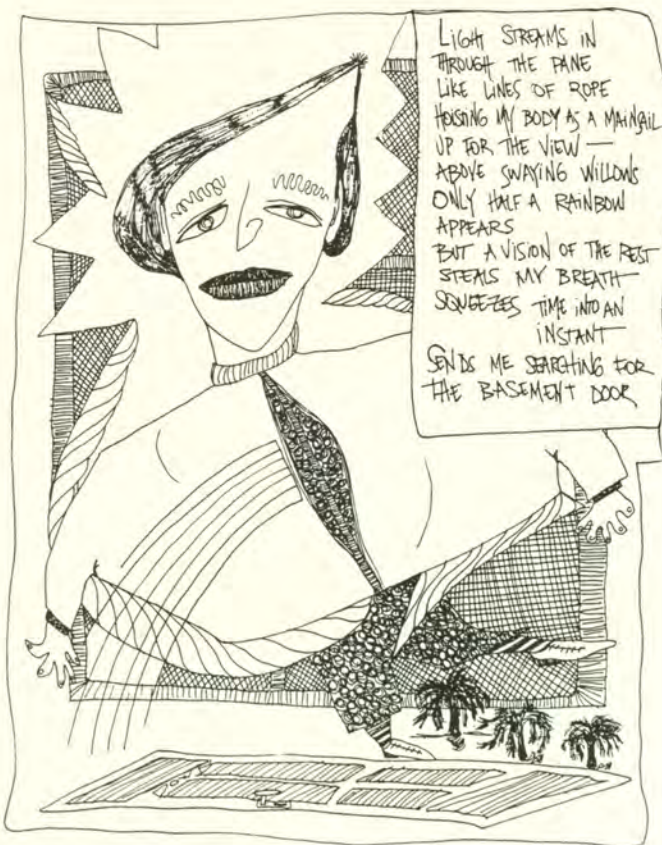 LIGHT STREAMS IN
THROUGH THE PANE
LIKE LINES OF ROPE
HOISTING MY BODY AS A MAINSAIL
UP FOR THE VIEW —
ABOVE SWAYING WILLOWS
ONLY HALF A RAINBOW
APPEARS
BUT A VISION OF THE REST
STEALS MY BREATH
SQUEEZES TIME INTO AN
INSTANT
SENDS ME SEARCHING FOR
THE BASEMENT DOOR